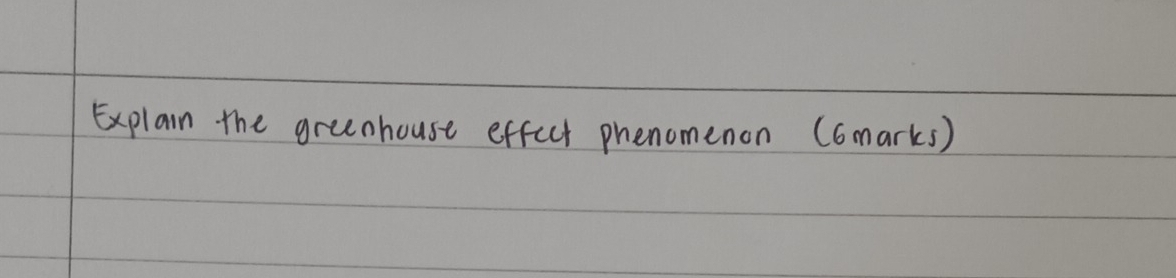 Explain the greenhouse effect phenomenon (6 marks)